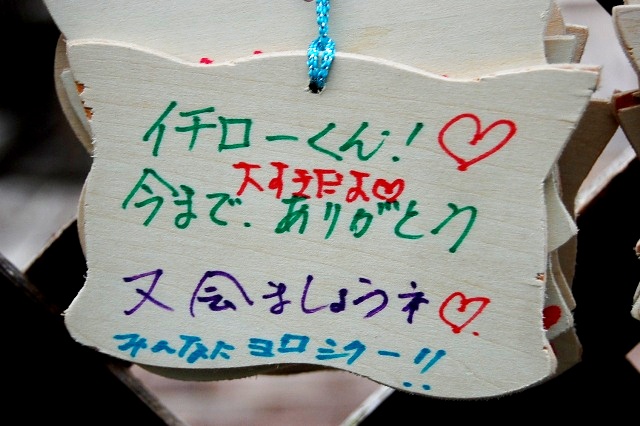 イチローくん!♡
大すきだよ♡
今まで、ありがとう
又会ましょうネ♡
みんなに ヨロシクー!!